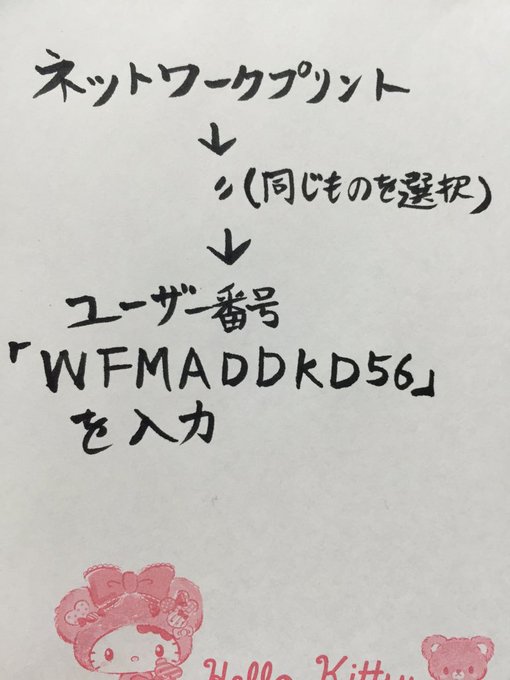 ネットワークプリント
↓
〃(同じものを選択)
↓
ユーザー番号
「WFMADDKD56」
を入力
Hello Kitty